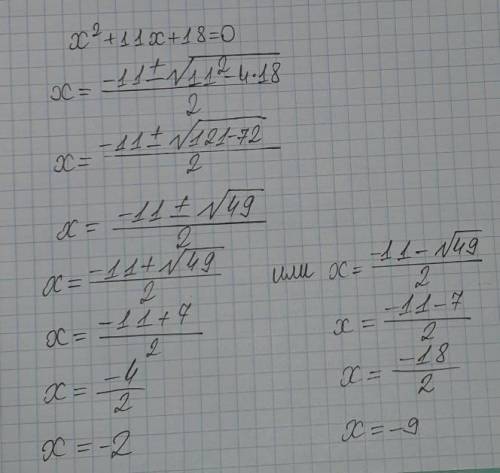 x²+11x+18=0
x = (-11 ± √(11²-4·18)) / 2
x = (-11 ± √(121-72)) / 2
x = (-11 ± √49) / 2
x = (-11+√49) / 2 или x = (-11-√49) / 2
x = (-11+7) / 2
x = (-11-7) / 2
x = -4 / 2
x = -18 / 2
x = -2
x = -9